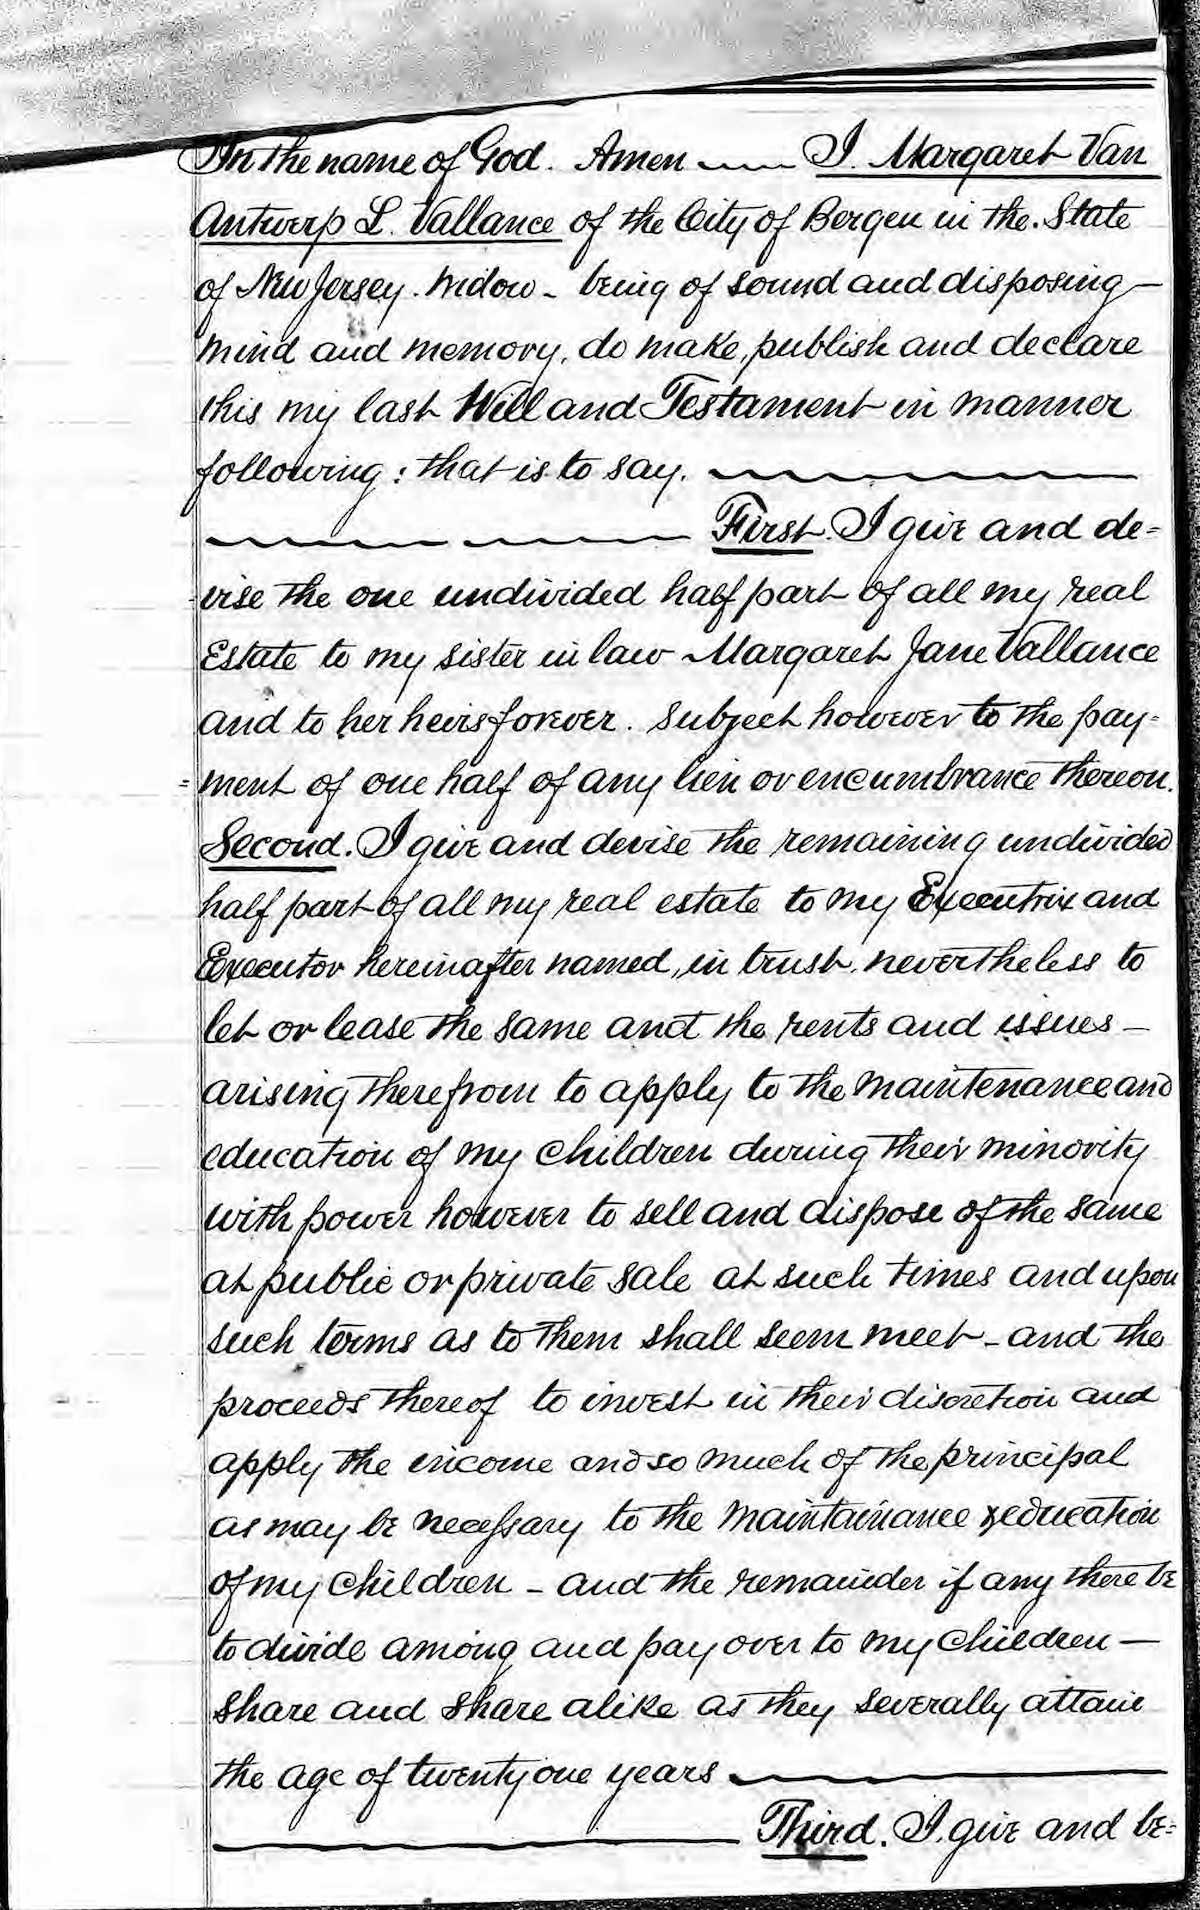 In the name of God. Amen —— I. Margaret Van
Antwerp L. Vallance of the City of Bergen in the State
of New Jersey. Widow - being of sound and disposing -
mind and memory, do make, publish and declare
this my last Will and Testament in manner
following: that is to say.
First. I give and de=
=vise the one undivided half part of all my real
Estate to my sister in law Margaret Jane Vallance
and to her heirs forever. subject however to the pay=
=ment of one half of any lien or encumbrance thereon.
Second. I give and devise the remaining undivided
half part of all my real estate to my Executrix and
Executor hereinafter named, in trust, nevertheless to
let or lease the same and the rents and issues -
arising therefrom to apply to the maintenance and
education of my children during their minority
with power however to sell and dispose of the same
at public or private sale at such times and upon
such terms as to them shall seem meet - and the
proceeds thereof to invest in their discretion and
apply the income and so much of the principal
as may be necessary to the maintainance & education
of my children - and the remainder if any there be
to divide among and pay over to my children -
share and share alike as they severally attain
the age of twenty one years
Third. I give and be=